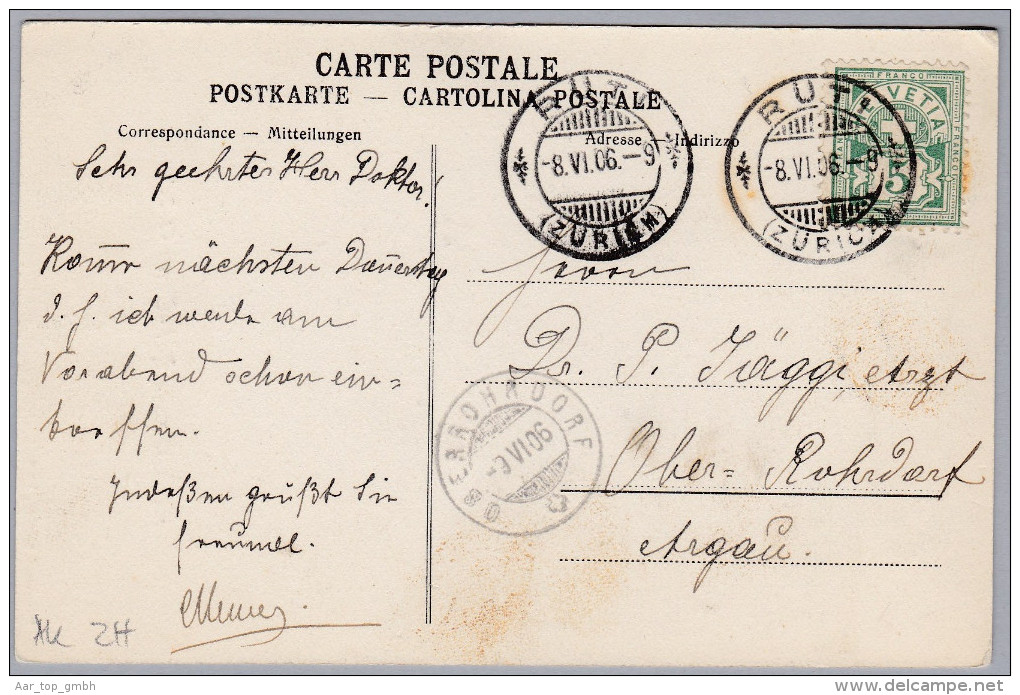 CARTE POSTALE
POSTKARTE — CARTOLINA POSTALE
Correspondance — Mitteilungen
Adresse — Indirizzo
RUTI
-8.VI.06.-9
(ZÜRICH)
RUTI
-8.VI.06.-9
(ZÜRICH)
FRANCO
HELVETIA
FRANCO
5
Sehr geehrter Herr Doktor!
Komme nächsten Donnerstag
d. h. ich werde am
Vorabend schon ein=
treffen.
Indeßen grüßt Sie
freundl.
Herrn
Dr. P. Jäggi, Arzt
Ober=Rohrdorf
Argau.
OBERROHRDORF
-9.VI.06
AK ZH
Aar_top_gmbh
delcampe.net